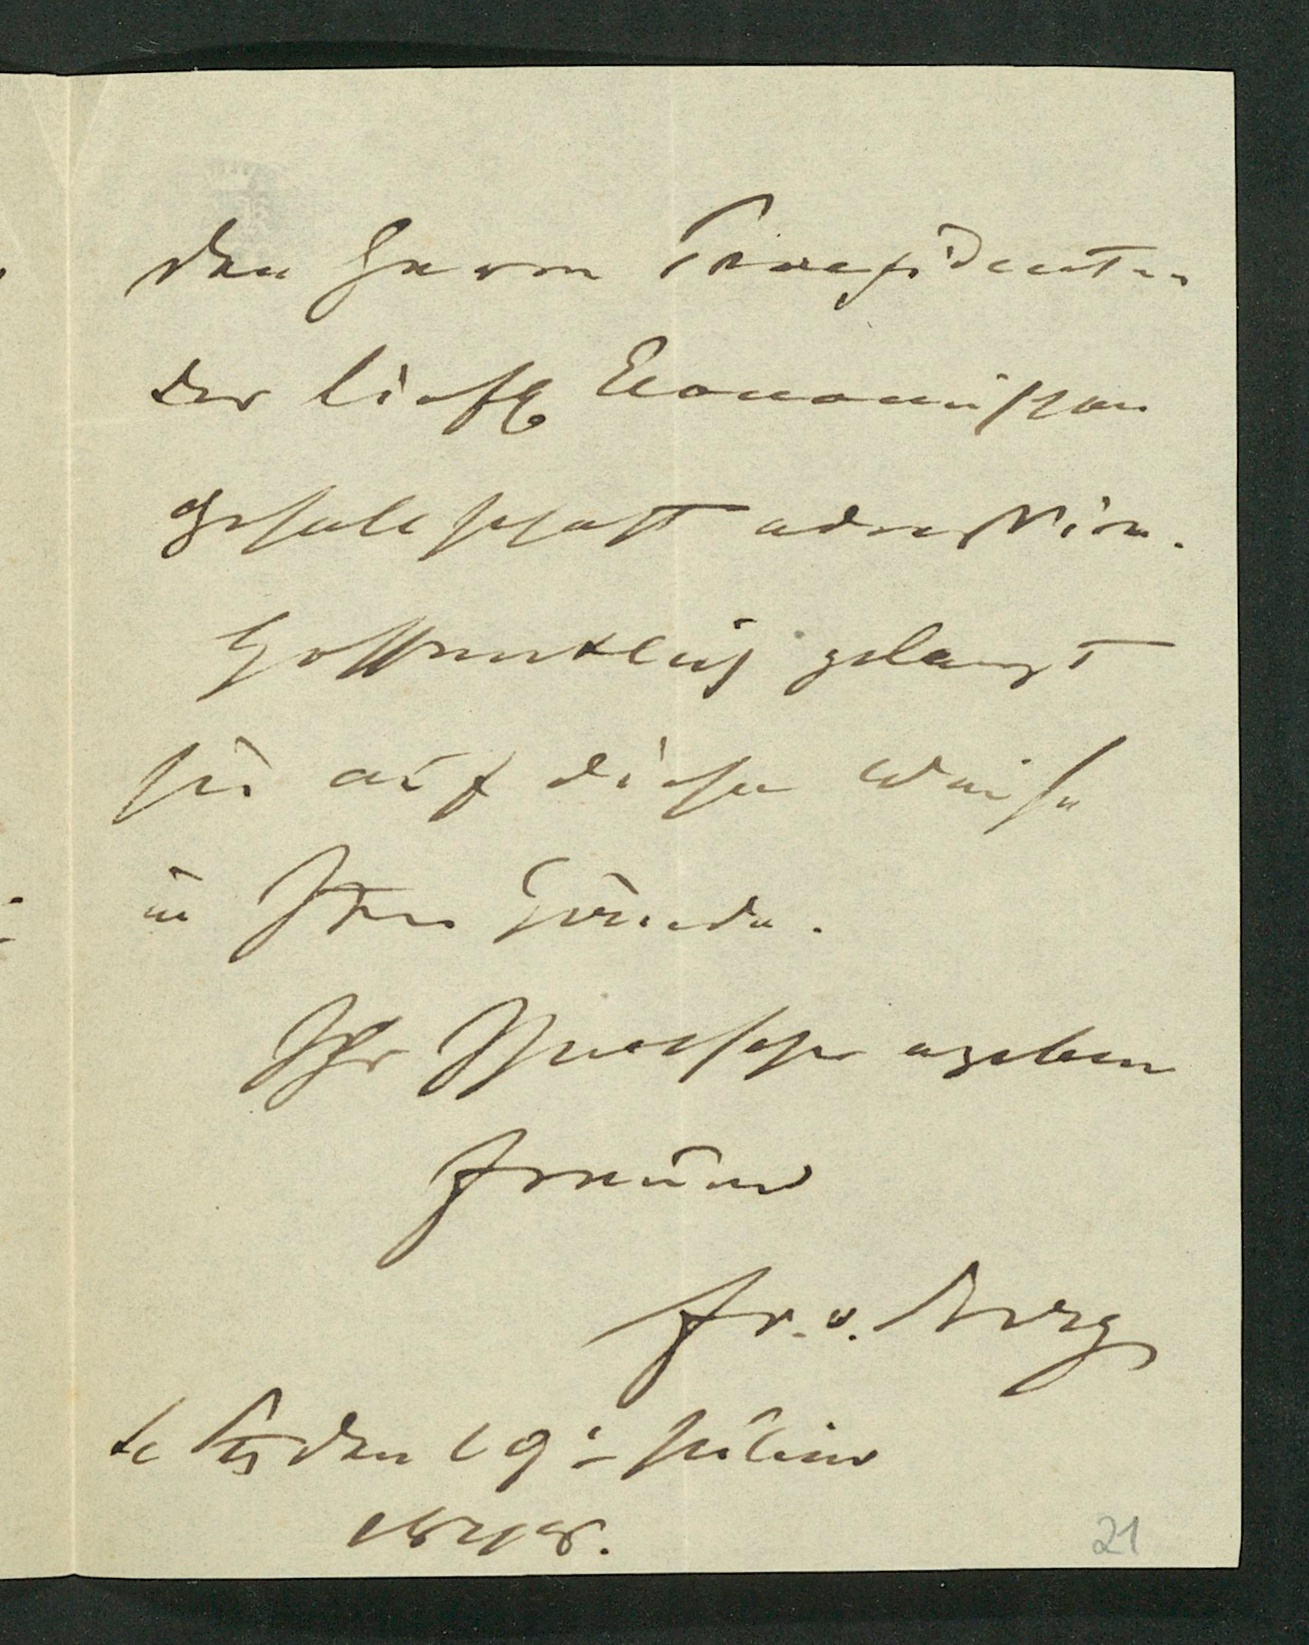 den Herrn Praesidenten
der livld Economischen
Gesellschaft adressiren.
Hoffentlich gelangt
sie auf diese Weise
in Ihre Hände.
Ihr Ihnen sehr ergebener
Freund
Fr. v. Berg
den 19. Julius
21